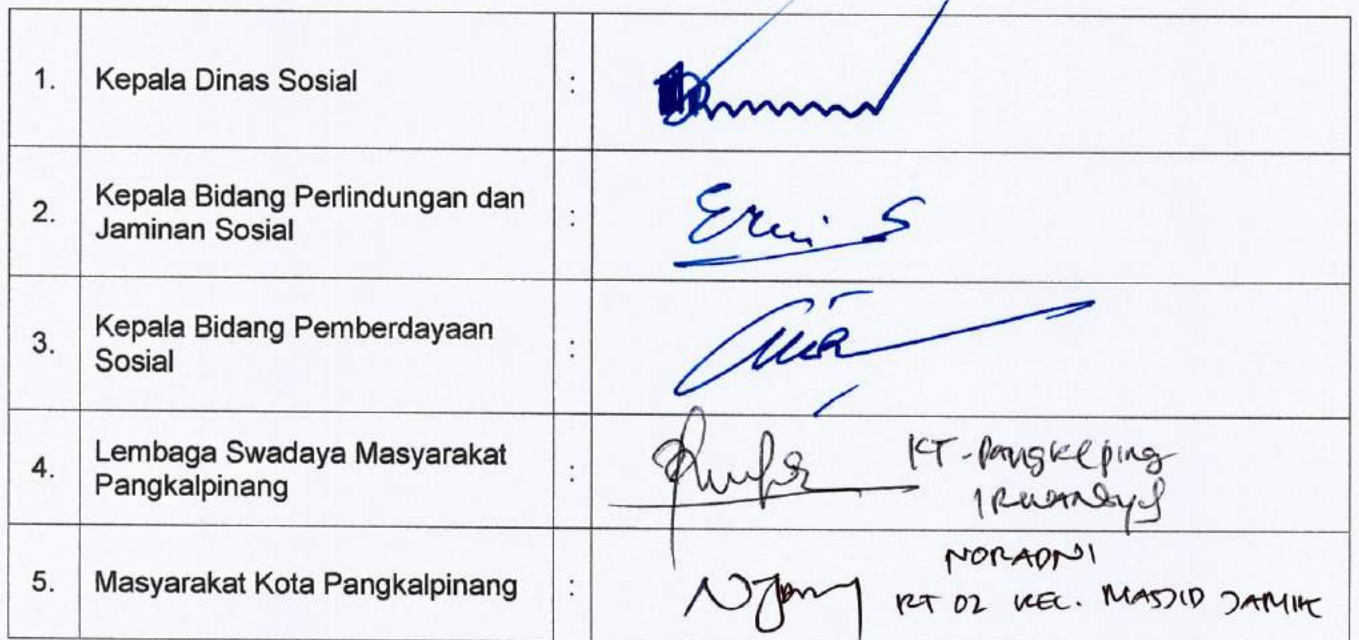 1. Kepala Dinas Sosial :
2. Kepala Bidang Perlindungan dan
Jaminan Sosial :
Erni S
3. Kepala Bidang Pemberdayaan
Sosial :
4. Lembaga Swadaya Masyarakat
Pangkalpinang :
KT-
5. Masyarakat Kota Pangkalpinang :
NORADNI
RT 02 KEL. MASJID JAMIK